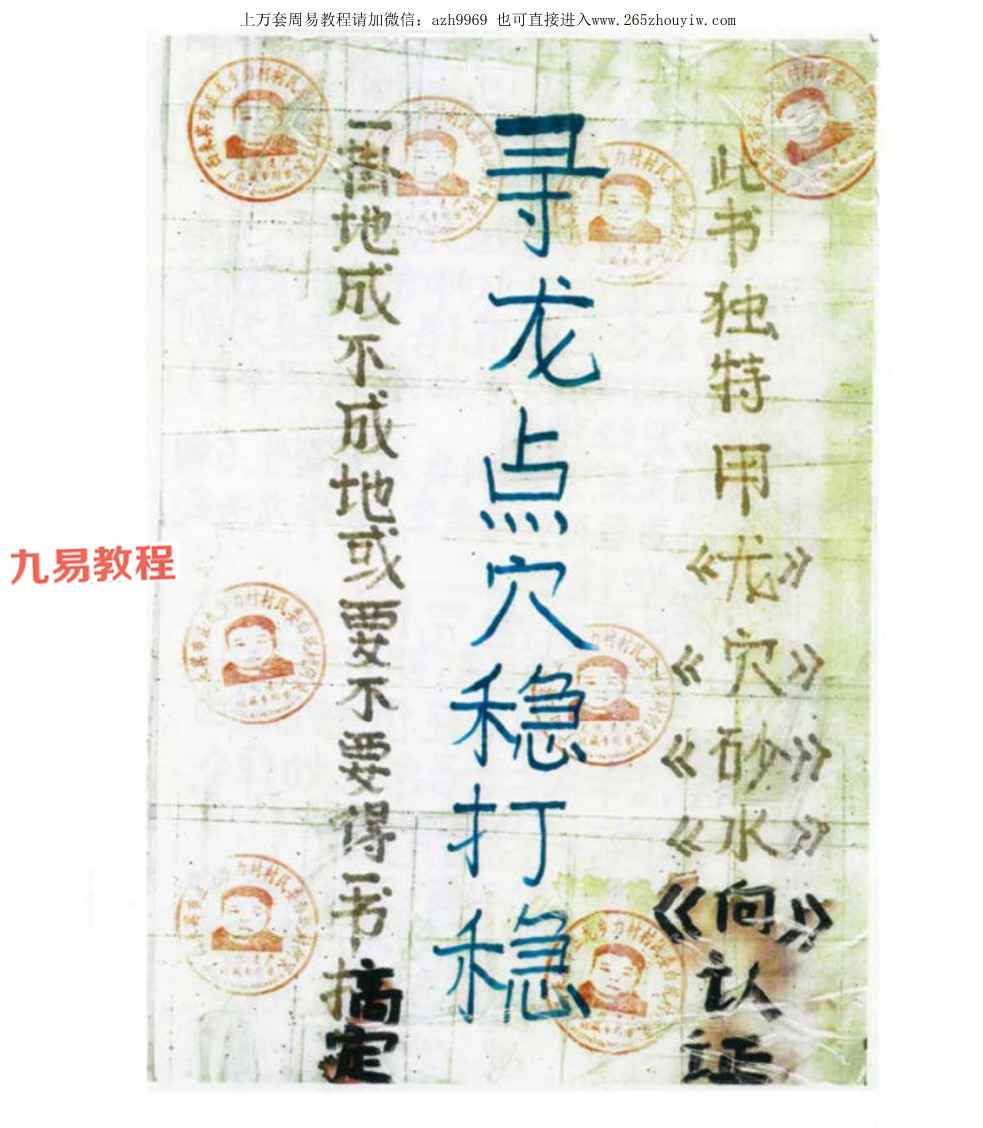 上万套周易教程请加微信：azh9969 也可直接进入www.265zhouyiw.com
此书独特用《龙》《穴》《砂》《水》《向》认证
寻龙点穴稳打稳
一掛地成不成地或要不要得一书搞定
九易教程